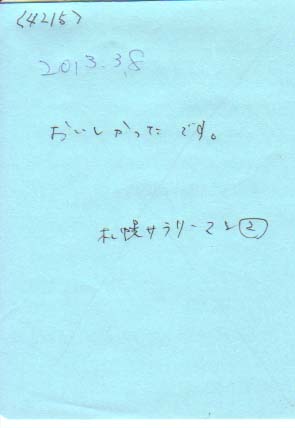 (4215)
2013.3.8
おいしかったです。
札幌サラリーマン②